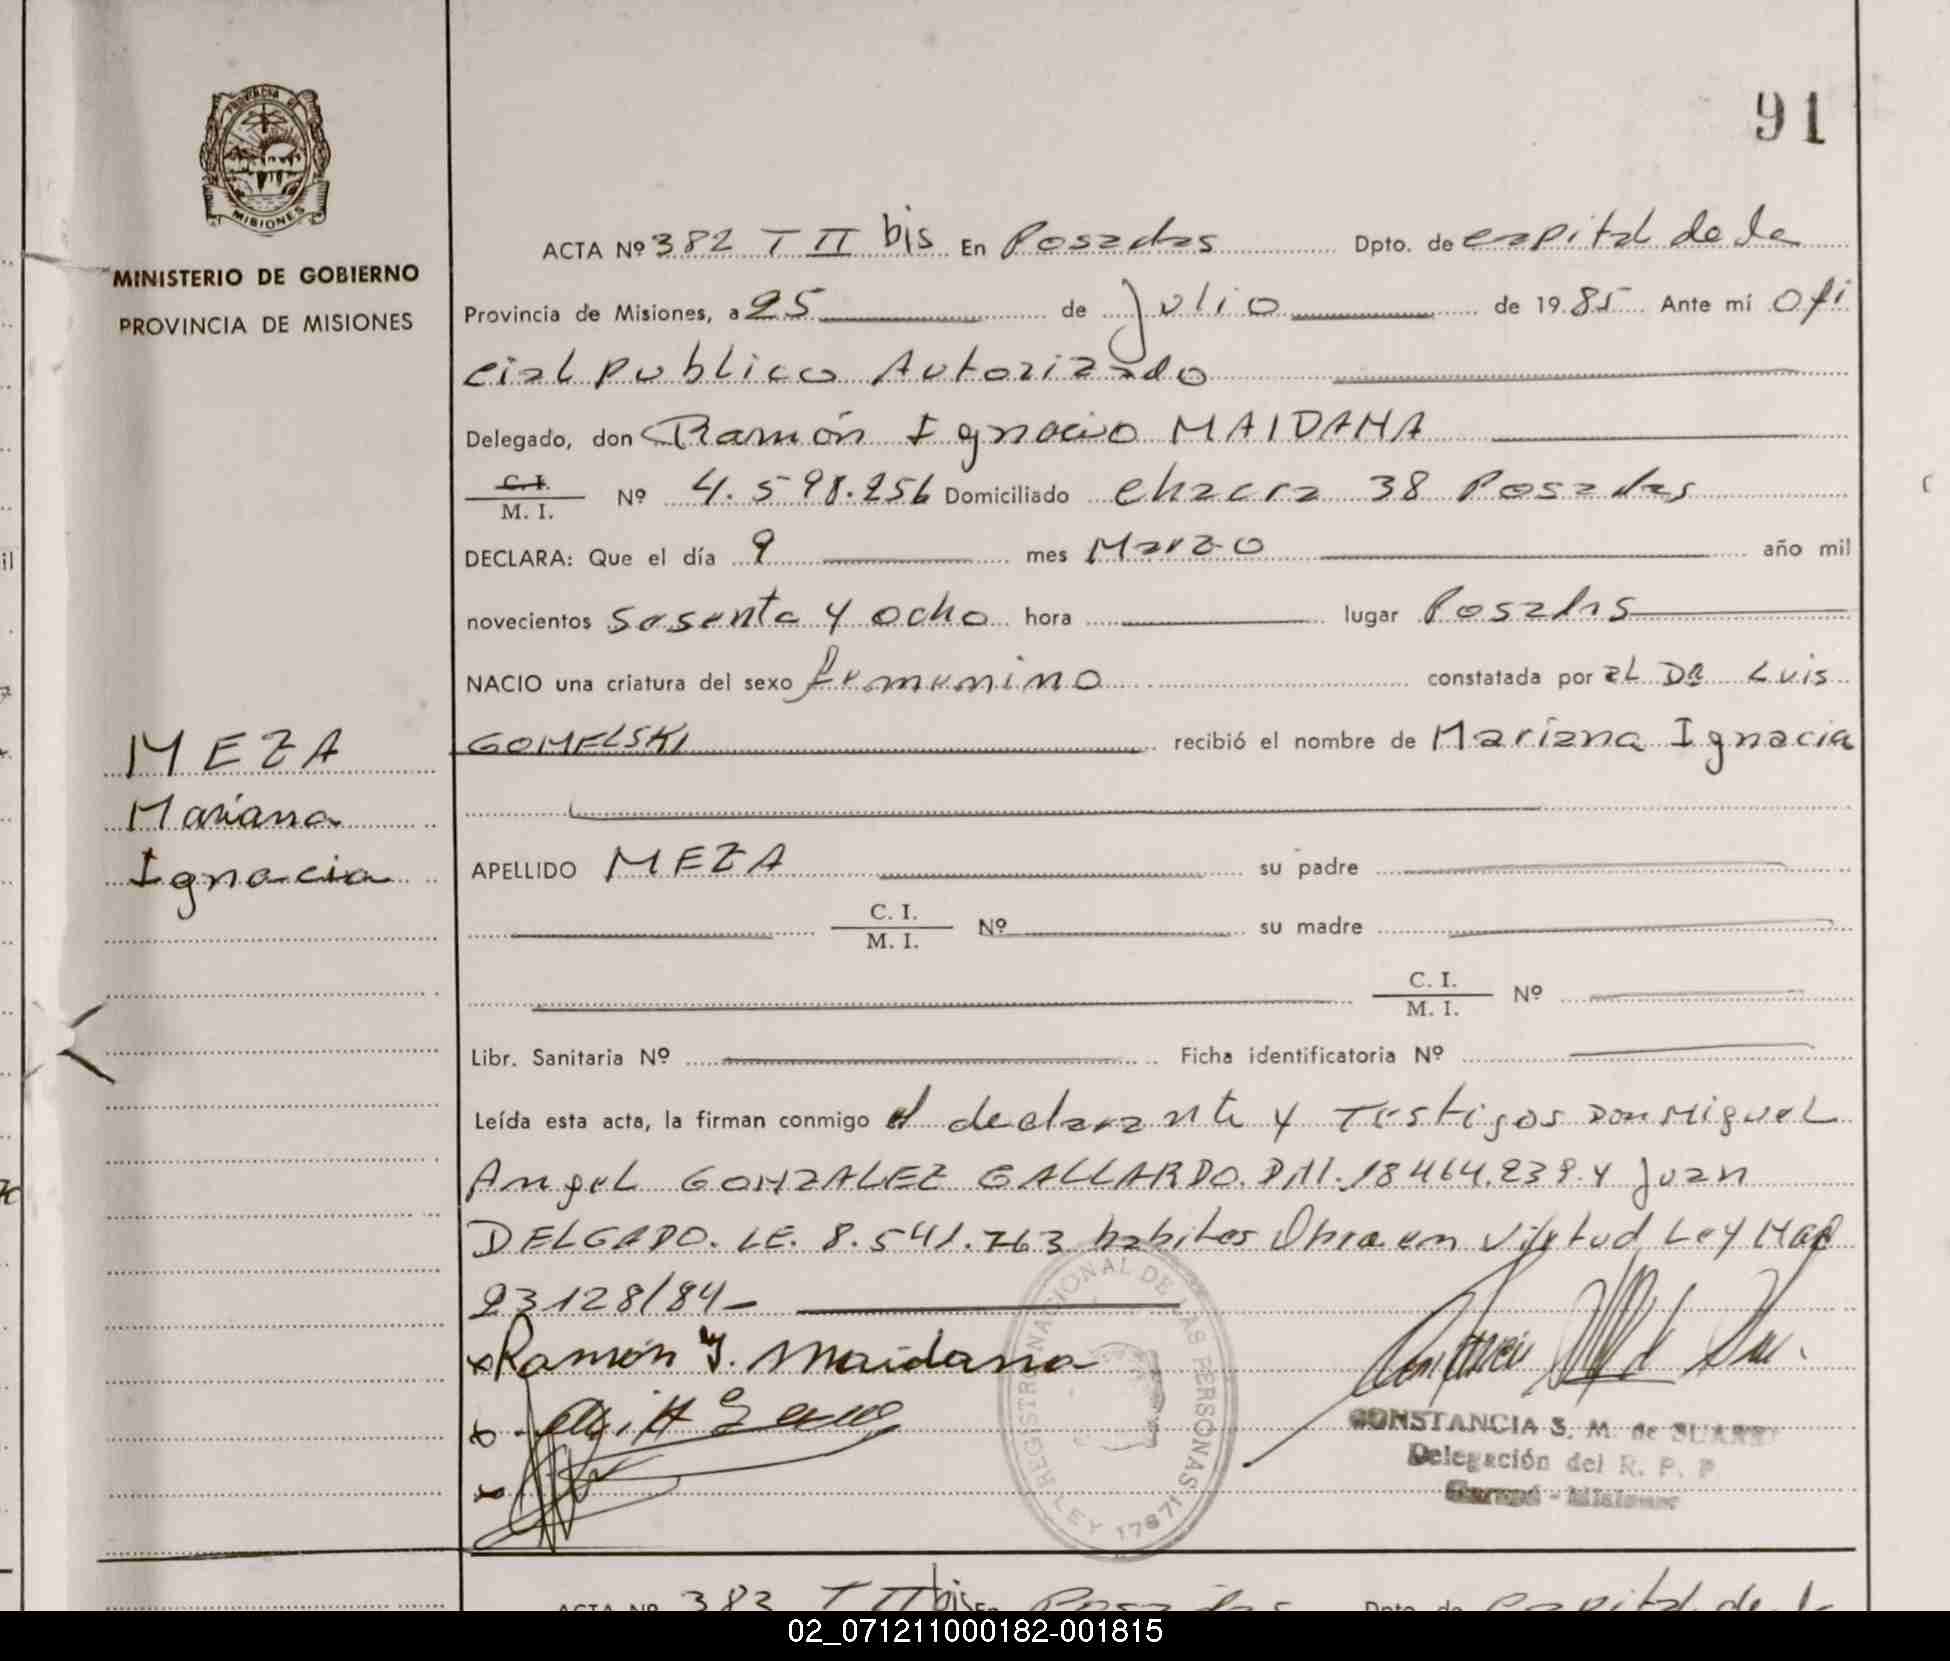 91
PROVINCIA DE
MISIONES
MINISTERIO DE GOBIERNO
PROVINCIA DE MISIONES
ACTA Nº 382 T II bis En Posadas Dpto. de capital de la
Provincia de Misiones, a 25 de Julio de 1985 Ante mí Ofi
cial publico Autorizado
Delegado, don Ramón Ignacio MAIDANA
C. I.
M. I. Nº 4.598.256 Domiciliado chacra 38 Posadas
DECLARA: Que el día 9 mes Marzo año mil
novecientos sesenta y ocho hora lugar Posadas
NACIO una criatura del sexo femenino constatada por EL DR Luis
GOMELSKI recibió el nombre de Mariana Ignacia
MEZA
Mariana
Ignacia
APELLIDO MEZA su padre
C. I.
M. I. Nº su madre
C. I.
M. I. Nº
Libr. Sanitaria Nº Ficha identificatoria Nº
Leída esta acta, la firman conmigo el declarante y Testigos Don Miguel
Angel GONZALEZ GALLARDO. DNI. 18464.239. y Juan
DELGADO. LE. 8.541.763 habiles Obra en Virtud Ley Nac
23128/84-
Ramón I. Maidana
REGISTRO NACIONAL DE LAS PERSONAS
LEY 17671
CONSTANCIA S. M. de SUAREZ
Delegación del R. P. P
Garupá - Misiones
ACTA Nº 383 T II bis En Posadas Dpto. de capital de la
02_071211000182-001815